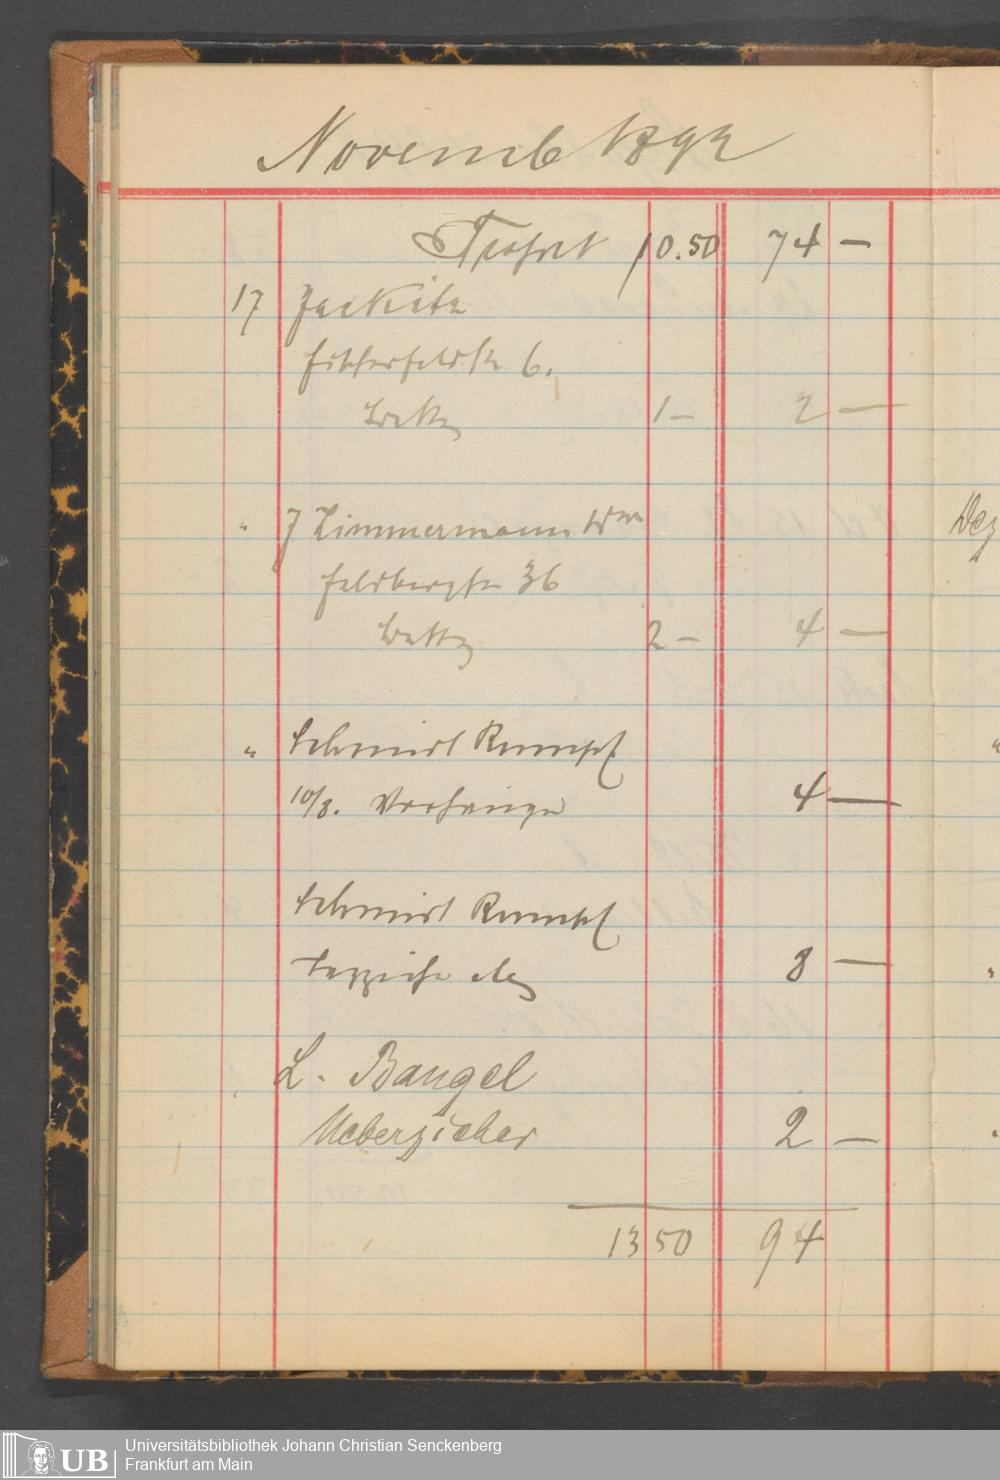 Novemb 1892
Trsprt 10.50 74 —
17 Jae Kitz
Fichardstr 6.
Betten 1 — 2 —
" J Zimmermann Wwe
Feldbergstr 36
Betten 2 — 4 —
" Schmidt Rumpf
10/3. Vorhänge 4 —
Schmidt Rumpf
Teppiche etc 8 —
L. Bangel
Ueberzieher 2 —
13 50 94
Dez
UB Universitätsbibliothek Johann Christian Senckenberg
Frankfurt am Main